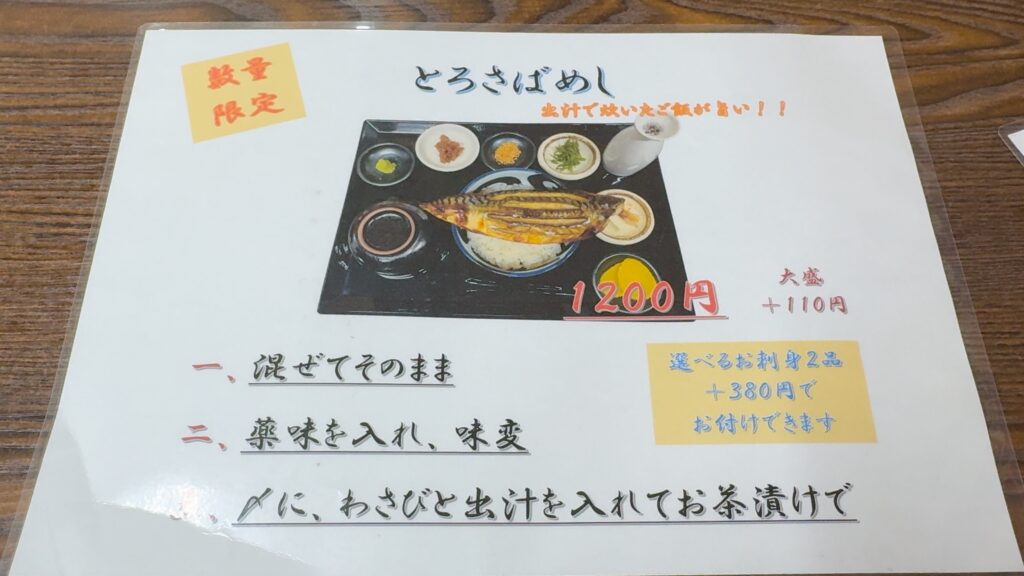 数量
限定
とろさばめし
出汁で炊いたご飯が旨い！！
1200円
大盛
＋110円
一、混ぜてそのまま
二、薬味を入れ、味変
〆に、わさびと出汁を入れてお茶漬けで
選べるお刺身2品
＋380円で
お付けできます